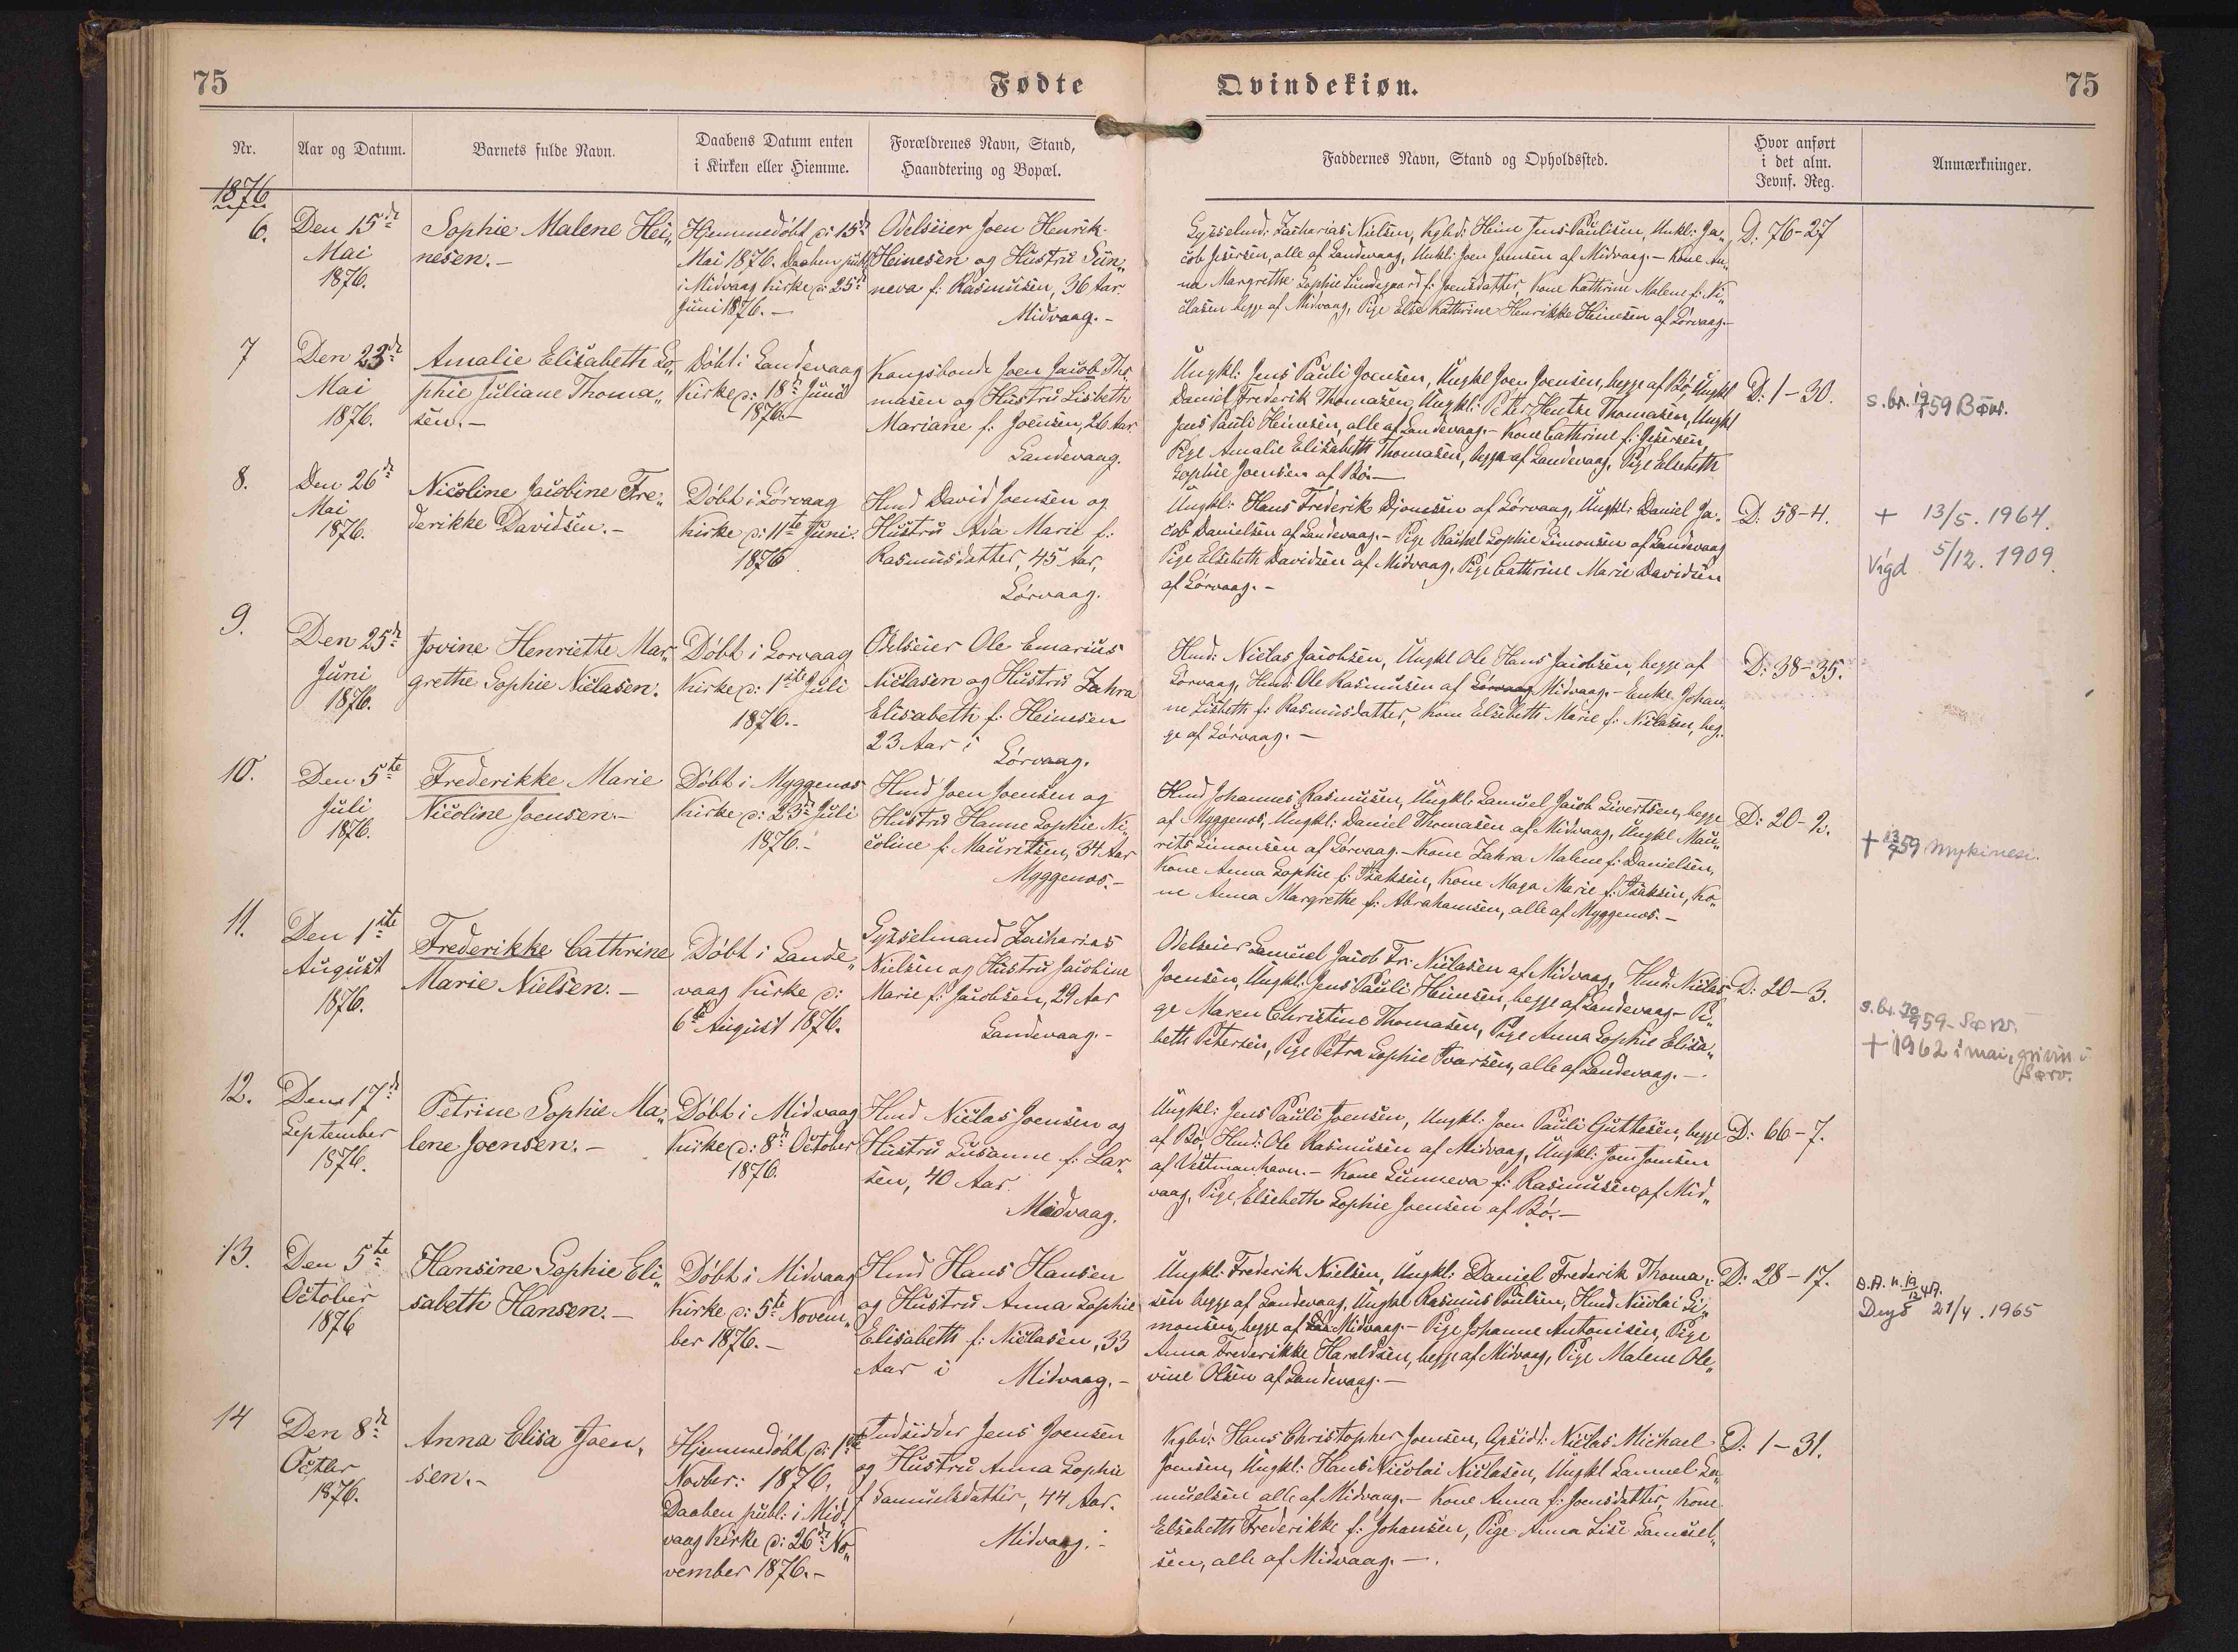 75
Fødte
Qvindekiøn.
75
Nr.
Aar og Datum.
Barnets fulde Navn.
Daabens Datum enten
i Kirken eller Hiemme.
Forældrenes Navn, Stand,
Haandtering og Bopæl.
Faddernes Navn, Stand og Opholdssted.
Hvor anført
i det alm.
Jevnf. Reg.
Anmærkninger.
1876
6.
Den 15d
Mai
1876.
Sophie Malene Hei„
nesen.-
Hjemmedöbt d: 15d
Mai 1876. Daaben publ
i Midvaag Kirke d: 25d
Juni 1876.-
Odelseier Joen Henrik
Heinesen og Hustru Sun„
neva f: Rasmusen, 36 Aar.
Midvaag.-
Sysselmd: Zacharias Nielsen, Kgbd: Heine Jens Paulisen, Unkl: Ja„
cob Josersen, alle af Sandevaag, Unkl: Joen Joensen af Midvaag.- Kone An„
na Margrethe Sophie Lundsgaard f: Joensdatter, Kone Kathrine Malene f: Ni„
clasen begge af Midvaag, Pige Else Kathrine Henrikke Heinesen af Sörvaag.-
D: 76-27
7
Den 23d
Mai
1876.
Amalie Elisabeth So„
phie Juliane Thoma„
sen.-
Döbt i Sandevaag
Kirke d: 18d Juni
1876.-
Kongsbonde Joen Jacob Tho
masen og Hustru Lisbeth
Mariane f: Joensen, 26 Aar.
Sandevaag.
Ungkl: Jens Pauli Joensen, Ungkl Joen Joensen, begge af Bö, Ungkl
Daniel Frederik Thomasen, Ungkl: Peter Hentze Thomasen, Ungkl
Jens Pauli Heinesen, alle af Sandevaag.- Kone Cathrine f: Josersen,
Pige Amalie Elisabeth Thomasen, begge af Sandevaag, Pige Elsebeth
Sophie Joensen af Bö.-
D: 1-30.
s.br. 19/1 59 Bøur.
8.
Den 26d
Mai
1876.
Nicoline Jacobine Fre„
derikke Davidsen.-
Döbt i Sörvaag
Kirke d: 11te Juni
1876
Hmd David Joensen og
Hustru Ada Marie f:
Rasmusdatter, 45 Aar,
Sörvaag.
Ungkl: Hans Frederik Djonesen af Sörvaag, Ungkl: Daniel Ja„
cob Danielsen af Sandevaag.- Pige Rachel Sophie Simonsen af Sandevaag
Pige Elsebeth Davidsen af Midvaag, Pige Cathrine Marie Davidsen
af Sörvaag.-
D: 58-4.
+ 13/5. 1964.
Vígd 5/12. 1909.
9.
Den 25d
Juni
1876.
Jovine Henriette Mar„
grethe Sophie Niclasen.
Döbt i Sorvaag
Kirke d: 1ste Juli
1876.-
Odelseier Ole Emarius
Niclasen og Hustru Zahra
Elisabeth f: Heinesen
23 Aar i
Sörvaag.
Hmd: Niclas Jacobsen, Ungkl Ole Hans Jacobsen, begge af
Sörvaag, Hmd: Ole Rasmusen af Sörvaag Midvaag.- Enke Johan„
ne Lisbeth f: Rasmusdatter, Kone Elsebeth Marie f: Niclasen, beg„
ge af Sörvaag.-
D: 38-35.
10.
Den 5te
Juli
1876.
Frederikke Marie
Nicoline Joensen.-
Döbt i Myggenes
Kirke d: 23d Juli
1876.-
Hmd Joen Joensen og
Hustru Hanne Sophie Ni„
coline f: Mauritsen, 34 Aar
Myggenes.-
Hmd Johannes Rasmusen, Ungkl: Samuel Jacob Sivertsen, begge
af Myggenes, Ungkl: Daniel Thomasen af Midvaag, Ungkl Mau„
rits Simonsen af Sörvaag.- Kone Zahra Malene f: Danielsen,
Kone Anna Sophie f: Isaksen, Kone Maga Marie f: Isaksen, Ko„
ne Anna Margrethe f: Abrahamsen, alle af Myggenes.-
D: 20-2.
+ 13/7 59 Mykinesi.
11.
Den 1ste
August
1876.
Frederikke Cathrine
Marie Nielsen.-
Döbt i Sande„
vaag Kirke d:
6te August 1876.
Sysselmand Zacharias
Nielsen og Hustru Jacobine
Marie f: Jacobsen, 29 Aar
Sandevaag.-
Odelseier Samuel Jacob Fr: Niclasen af Midvaag, Hmd: Niclas
Joensen, Ungkl: Jens Pauli Heinesen, begge af Sandevaag.- Pi„
ge Maren Christine Thomasen, Pige Anna Sophie Elisa„
beth Petersen, Pige Petra Sophie Ivarsen, alle af Sandevaag.-
D: 20-3.
+ 1962 í mai, grivin í
Sørv.
12.
Den 17d
September
1876.
Petrine Sophie Ma„
lene Joensen.-
Döbt i Midvaag
Kirke d: 8d October
1876.
Hmd Niclas Joensen og
Hustru Susanne f: Lar„
sen, 40 Aar
Midvaag.
Ungkl: Jens Pauli Joensen, Ungkl: Joen Pauli Guttesen, begge
af Bö, Hmd: Ole Rasmusen af Midvaag, Ungkl: Joen Joensen
af Vestmanhavn.- Kone Sunneva f: Rasmusen af Mid„
vaag, Pige Elsebeth Sophie Joensen af Bö.-
D: 66-7.
13.
Den 5te
October
1876
Hansine Sophie Eli„
sabeth Hansen.-
Döbt i Midvaag
Kirke d: 5te Novem„
ber 1876.-
Hmd Hans Hansen
og Hustru Anna Sophie
Elisabeth f: Niclasen, 33
Aar i
Midvaag.-
Ungkl: Frederik Nielsen, Ungkl: Daniel Frederik Thoma„
sen begge af Sandevaag, Ungkl Rasmus Poulsen, Hmd Nicolai Si„
monsen, begge af Midvaag.- Pige Johanne Antonisen, Pige
Anna Frederikke Haraldsen, begge af Midvaag, Pige Malene Ole„
vine Olsen af Sandevaag.-
D: 28-17.
Deyð 21/4. 1965
14
Den 8d
Octbr
1876.
Anna Elisa Joen„
sen.-
Hjemmedöbt d: 1ste
Novbr: 1876,
Daaben publ: i Mid„
vaag Kirke d: 26d No„
vember 1876.-
Indsidder Jens Joensen
og Hustru Anna Sophie
f Samuelsdatter, 44 Aar.
Midvaag.-
Kgbd: Hans Christopher Joensen, Niclas Michael
Joensen, Ungkl: Hans Nicolai Niclasen, Ungkl Samuel Sa„
muelsen alle af Midvaag.- Kone Anna f: Joensdatter, Kone
Elsebeth Frederikke f: Johansen, Pige Anna Lise Samuel„
sen, alle af Midvaag.-
D: 1-31.